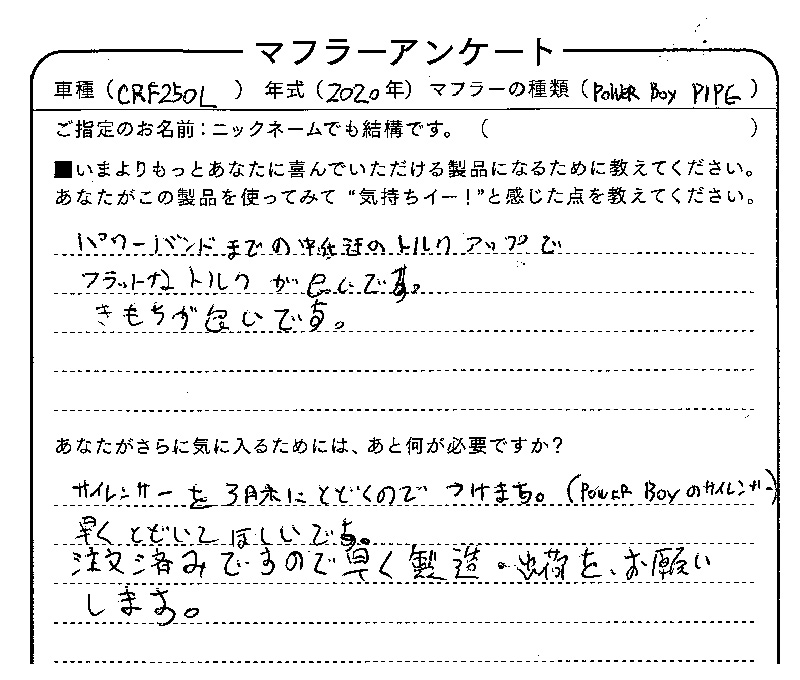 マフラーアンケート
車種（CRF250L） 年式（2020年） マフラーの種類（POWER BOY PIPE）
ご指定のお名前：ニックネームでも結構です。（ ）
■いまよりもっとあなたに喜んでいただける製品になるために教えてください。
あなたがこの製品を使ってみて“気持ちイー！”と感じた点を教えてください。
パワーバンドまでの中低速のトルクアップで
フラットなトルクが いいです。
きもちが いいです。
あなたがさらに気に入るためには、あと何が必要ですか？
サイレンサーを3月末にとどくのでつけます。（POWER BOYのサイレンサー）
早くとどいてほしいです。
注文済みですので早く製造・出荷を、お願い
します。